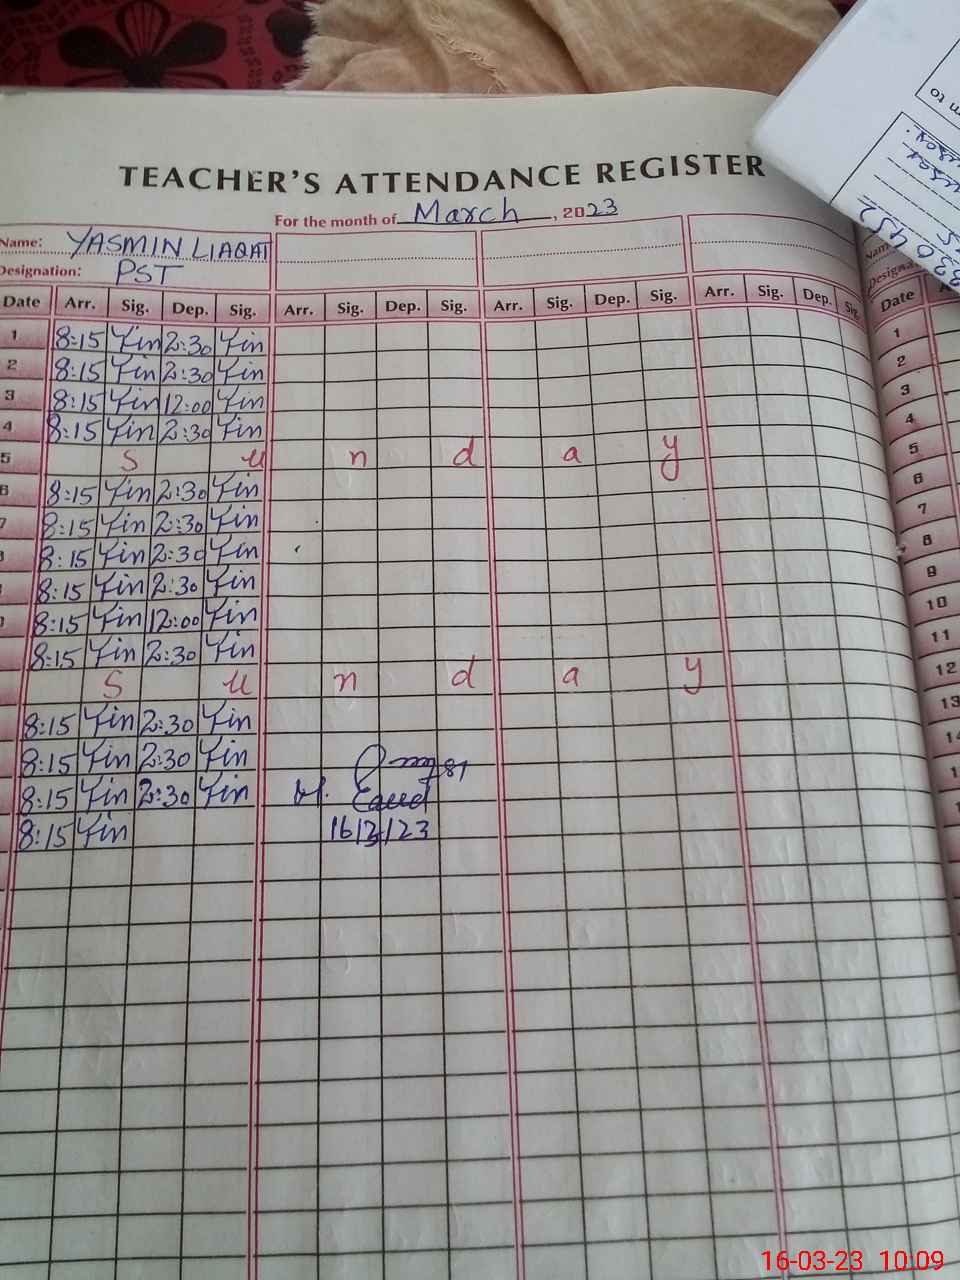 TEACHER'S ATTENDANCE REGISTER
For the month of March, 2023
Name: YASMIN LIAQAT
Designation: PST
Date Arr. Sig. Dep. Sig. Arr. Sig. Dep. Sig. Arr. Sig. Dep. Sig. Arr. Sig. Dep. Sig. Date
1 8:15 Yin 2:30 Yin 1
2 8:15 Yin 2:30 Yin 2
3 8:15 Yin 12:00 Yin 3
4 8:15 Yin 2:30 Yin 4
5 S u n d a y 5
6 8:15 Yin 2:30 Yin 6
7 8:15 Yin 2:30 Yin 7
8:15 Yin 2:30 Yin 8
8:15 Yin 2:30 Yin 9
8:15 Yin 12:00 Yin 10
8:15 Yin 2:30 Yin 11
S u n d a y 12
8:15 Yin 2:30 Yin 13
8:15 Yin 2:30 Yin
8:15 Yin 2:30 Yin
8:15 Yin 16/3/23
16-03-23 10:09